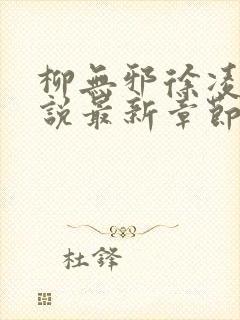 柳無邪徐凌
說最新章節
杜鋒